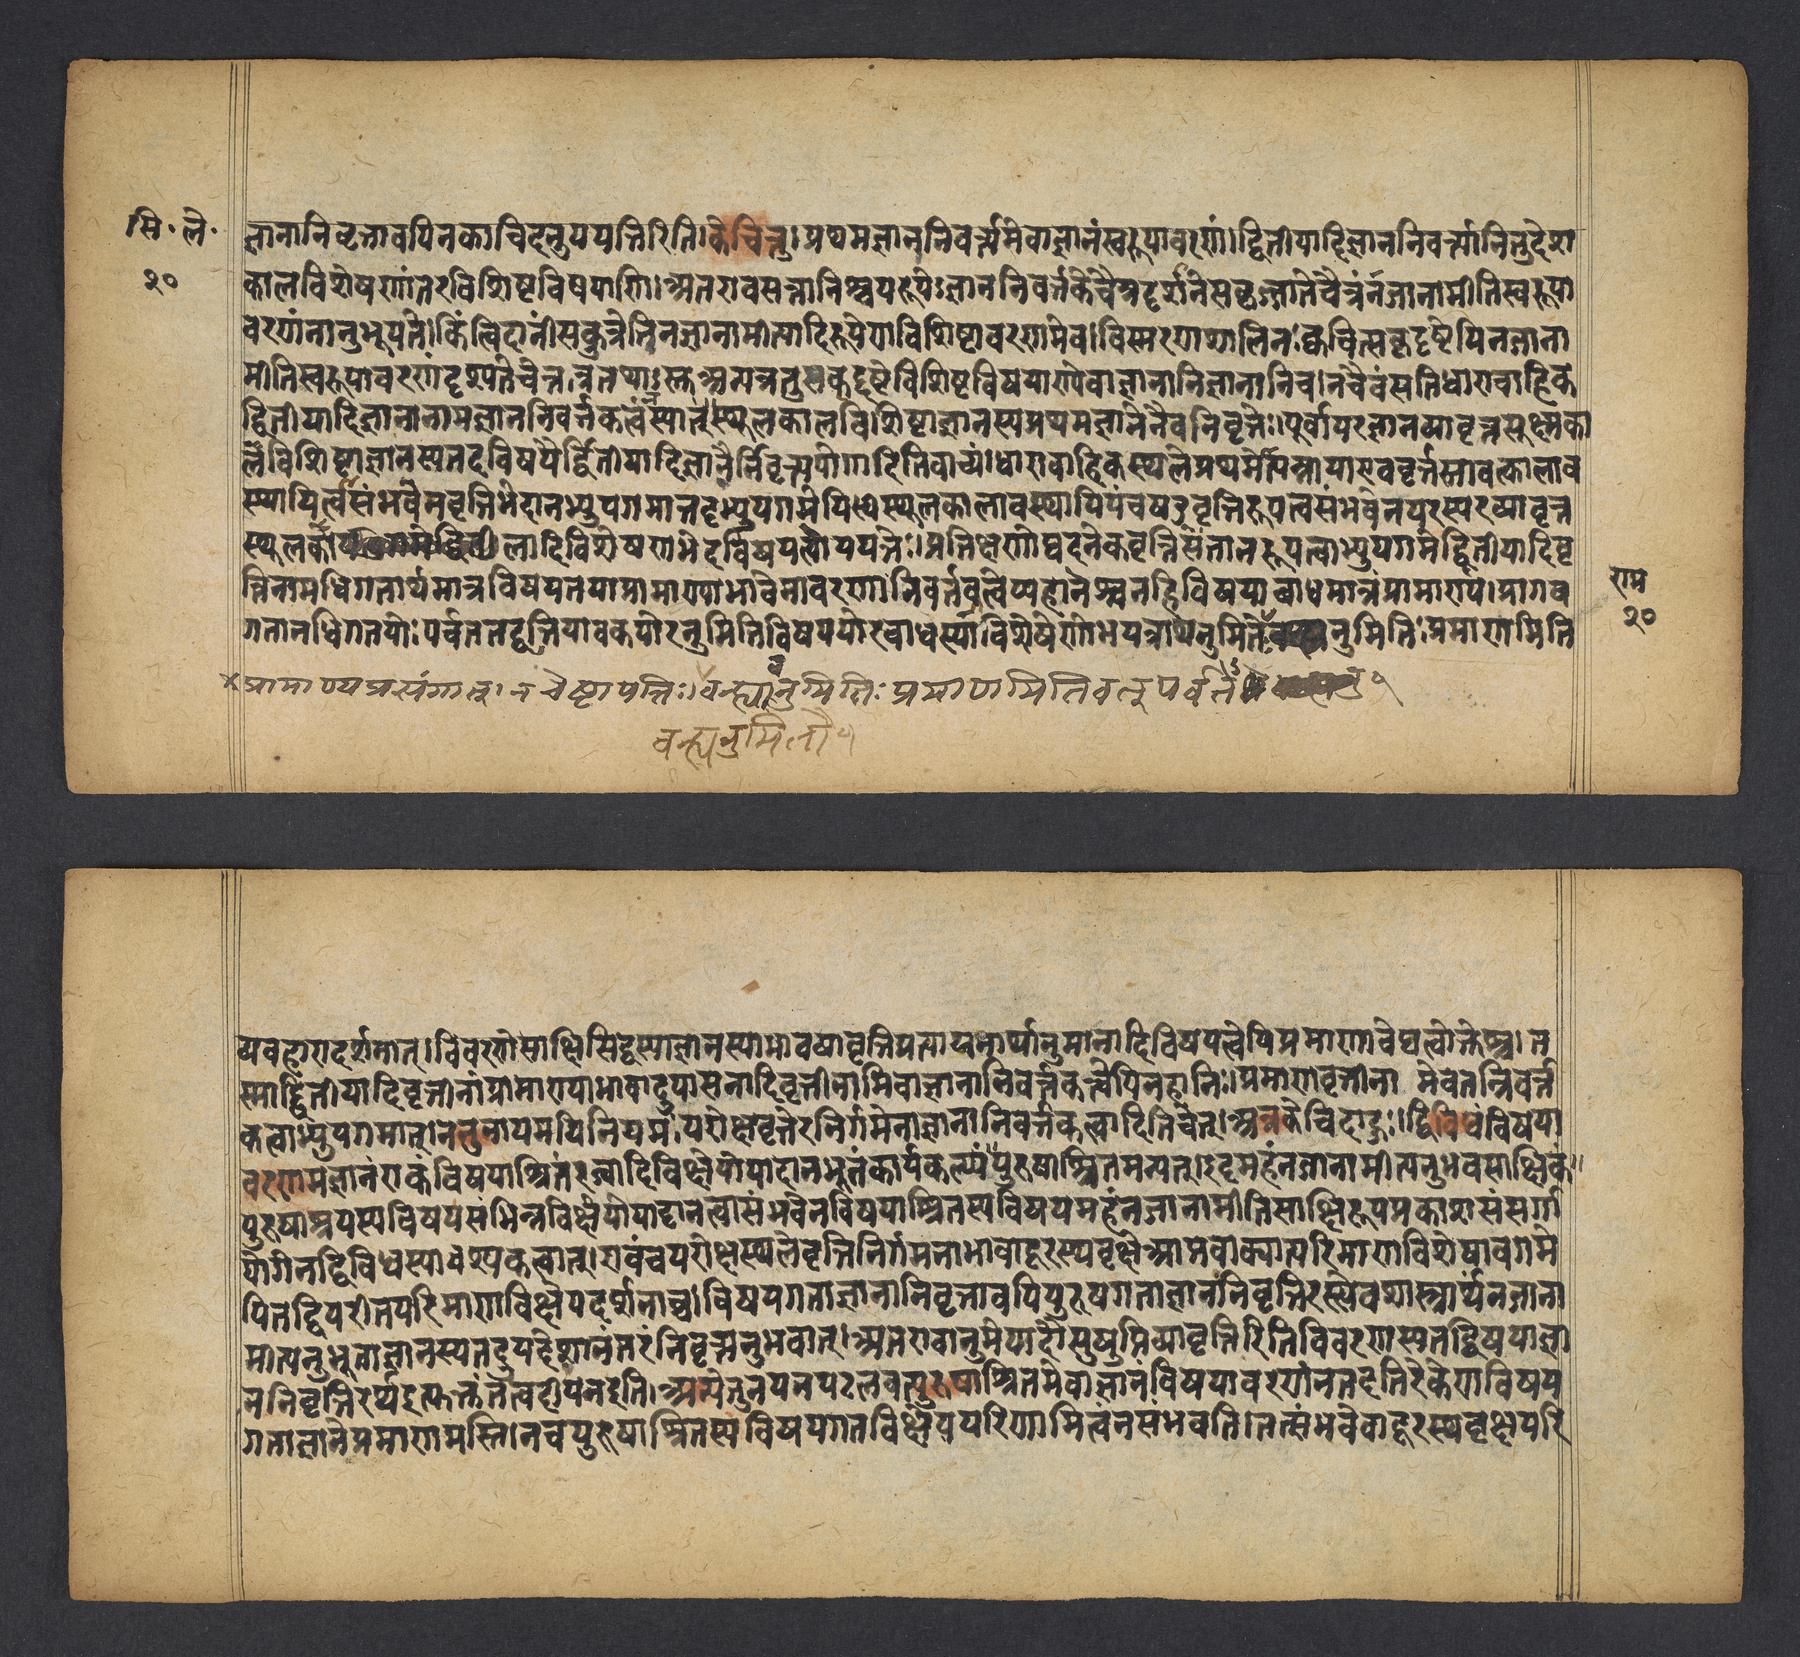 सि. ले.
२०
ज्ञानानिवृत्तावपिनकाचिदनुपपत्तिरिति।केचित्तु।प्रथमज्ञाननिवर्त्यमेवाज्ञानंस्वरूपावरणं।द्वितीयादिज्ञाननिवर्त्यानितुदेश
कालविशेषणांतरविशिष्टविषयाणि।अतएवसत्तानिश्चयरूपेऽज्ञाननिवर्तकेचैत्रदर्शनेसकृज्जातेचैत्रंनजानामीतिस्वरूपा
वरणंनानुभूयते।किंत्विदानींसकुत्रेतिनजानामीत्यादिरूपेणविशिष्टावरणमेव।विस्मरणशालिनःक्वचित्सकृदृष्टेपिनजाना
मीतिस्वरूपावरणंदृश्यतेचेत्तत्रतथास्तुअन्यत्रतुसकृदृष्टेविशिष्टविषयाण्येवाज्ञानानिज्ञानानिच।नचैवंसतिधारावाहिके
द्वितीयादिज्ञानानामज्ञाननिवर्तकत्वंनस्यात्।स्थूलकालविशिष्टाज्ञानस्यप्रथमज्ञानेनैवनिवृत्तेः।पूर्वापरज्ञानव्यावृत्तसूक्ष्मका
लविशिष्टाज्ञानस्यतदविषयैर्द्वितीयादिज्ञानैर्निवृत्ययोगादितिवाच्यं।धारावाहिकस्थलेप्रथमोत्पन्नायाएववृत्तेस्तावत्कालाव
स्थायित्वसंभवेनवृत्तिभेदानभ्युपगमात्तदभ्युपगमेपिस्थूलकालावस्थायिपंचषड्वृत्तिरूपत्वसंभवेनपरस्परव्यावृत्त
स्थूलकालादिविशेषणभेदविषयत्वोपपत्तेः।प्रतिक्षणोद्यदनेकवृत्तिसंतानरूपत्वाभ्युपगमेद्वितीयादिवृ
त्तिनामधिगतार्थमात्रविषयतयाप्रामाण्याभावेनावरणानिवर्तकत्वेप्यहानेश्चनहिविषयाबाधमात्रंप्रामाण्यं।प्रागव
राम
२०
गतानधिगतयोःपर्वततद्वृत्तिपावकयोरनुमितिविषययोरबाधस्याविशेषेणोभयत्राप्यनुमितेःनुमितिःप्रमाणमिति
प्रामाण्यप्रसंगात्।नचेष्टापत्तिः।वन्ह्यानुमितिःप्रमाणमितिवत्पर्वते
वन्ह्यनुमितौ
व्यवहारादर्शनात्।विवरणेसाक्षिसिद्धस्याज्ञानस्याभावव्यावृत्तिप्रत्यायनार्थानुमानादिविषयत्वेपिप्रमाणावेद्यत्वोक्तेश्च।त
स्माद्द्वितीयादिवृत्तीनांप्रामाण्याभावादुपासनादिवृत्तीनामिवाज्ञानानिवर्तकत्वेपिनहानिः।प्रमाणवृत्तीनामेवतन्निवर्त
कत्वाभ्युपगमात्।ननुनायमपिनियमः।परोक्षवृत्तेरनिर्गमेनाज्ञानानिवर्तकत्वादितिचेत्।अत्रकेचिदाहुः।द्विविधंविषया
वरणमज्ञानंएकंविषयाश्रितंरज्वादिविक्षेपोपादानभूतंकार्यकल्प्यं।पुरुषाश्रितमन्यत्।इदमहंनजानामीत्यनुभवसाक्षिकं।
पुरुषाश्रयस्यविषयसंभिन्नविक्षेपोपादानत्वासंभवेनविषयाश्रितस्यविषयमहंनजानामीतिसाक्षिरूपप्रकाशसंसर्गा
योगेनद्विविधस्याप्यावश्यकत्वात्।एवंचपरोक्षस्थलेवृत्तिनिर्गमनाभावाद्दूरस्थवृक्षेआप्तवाक्यात्परिमाणविशेषावगमे
पितद्विपरीतपरिमाणविक्षेपदर्शनाच्च।विषयगताज्ञानानिवृत्तावपिपुरुषगताज्ञाननिवृत्तिरस्त्येवशास्त्रार्थंनजाना
मीत्यनुभूताज्ञानस्यतदुपदेशानंतरंनिवृत्त्यनुभवात्।अतएवानुमेयादौसुषुप्तिव्यावृत्तिरितिविवरणस्यतद्विषयाज्ञा
ननिवृत्तिरर्थइत्युक्तंतत्वदीपनइति।अन्येतुनयनपटलवत्पुरुषाश्रितमेवाज्ञानंविषयावरणंनतदतिरेकेणविषय
गताज्ञानेप्रमाणमस्ति।नचपुरुषाश्रितस्यविषयगतविक्षेपपरिणामित्वंनसंभवति।तत्संभवेवादूरस्थवृक्षेपरि